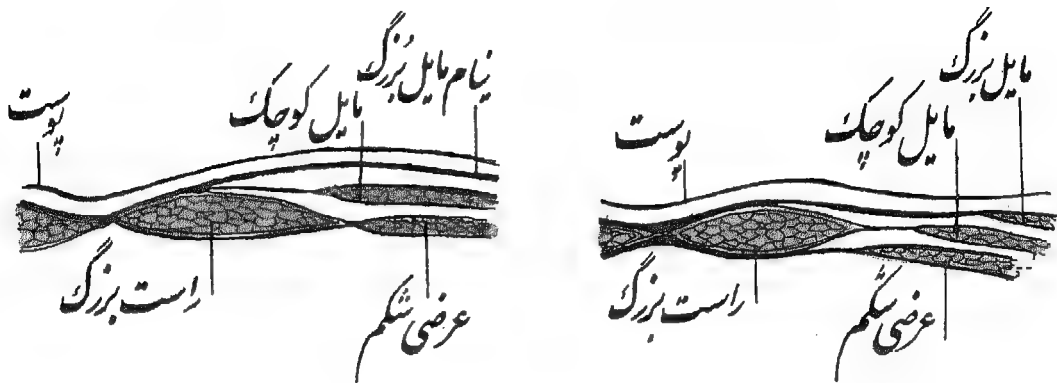 مایل بزرگ
مایل کوچک
پوست
راست بزرگ
عرضی شکم
نیام مایل بزرگ
مایل کوچک
پوست
راست بزرگ
عرضی شکم